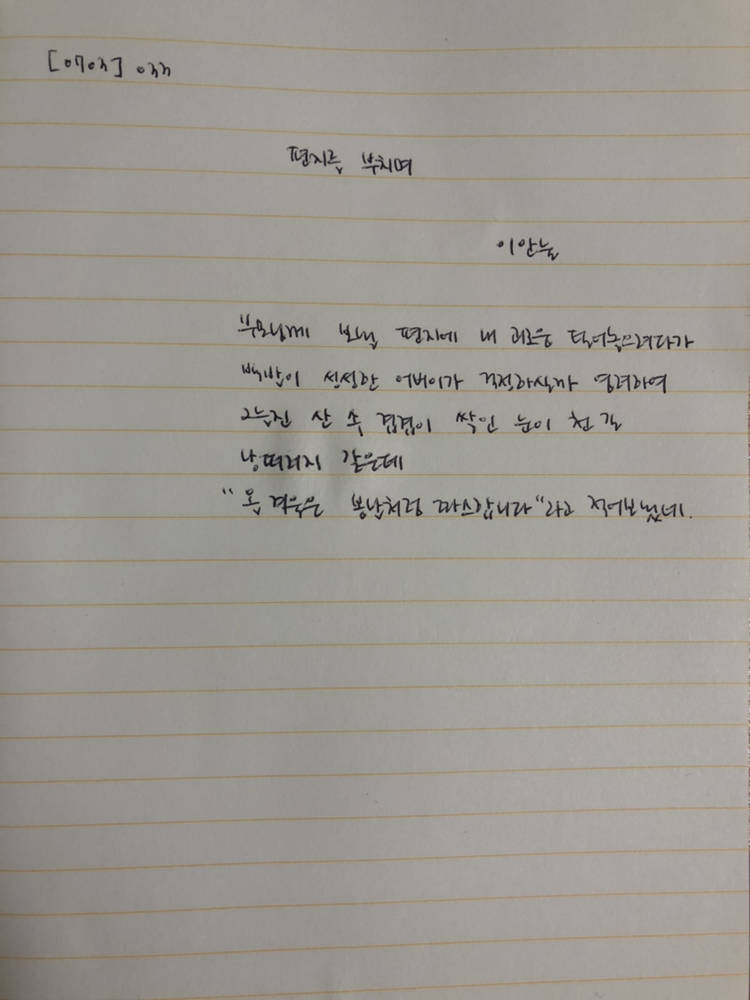 [0703] 033
편지를 부치며
이안눌
부모님께 보낼 편지에 내 괴로움 털어놓으려다가
백발이 성성한 어버이가 걱정하실까 염려하여
그늘진 산 속 겹겹이 싹인 눈이 천 길
낭떠러지 같은데
"올 겨울은 봄날처럼 따스합니다"라고 적어보냈네.